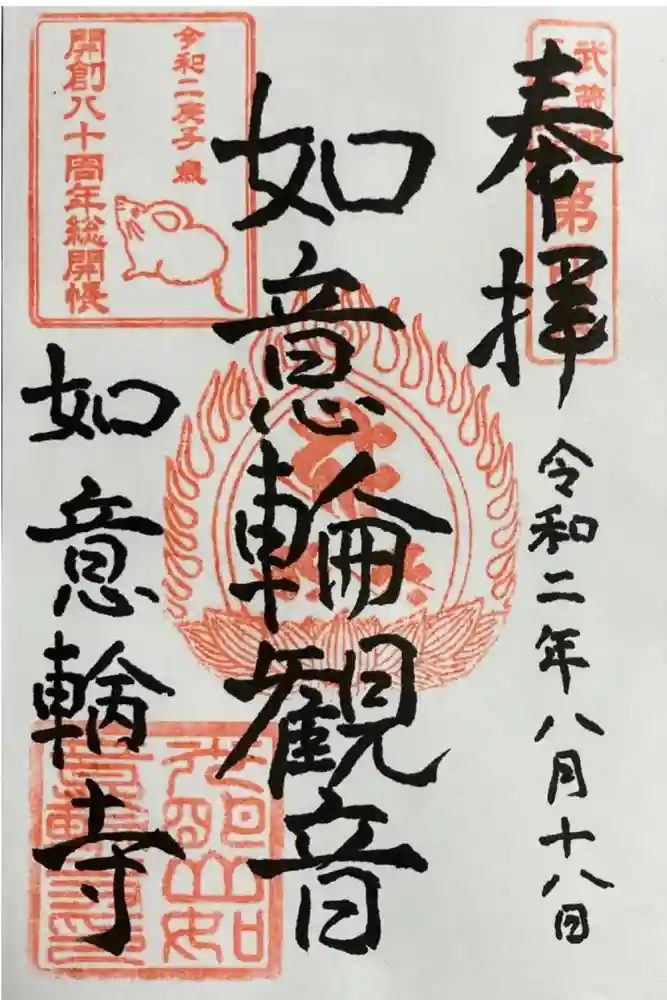 奉拝
令和二年八月十八日
如意輪観音
如意輪寺
令和二庚子歳
開創八十周年総開帳
武蔵野
第